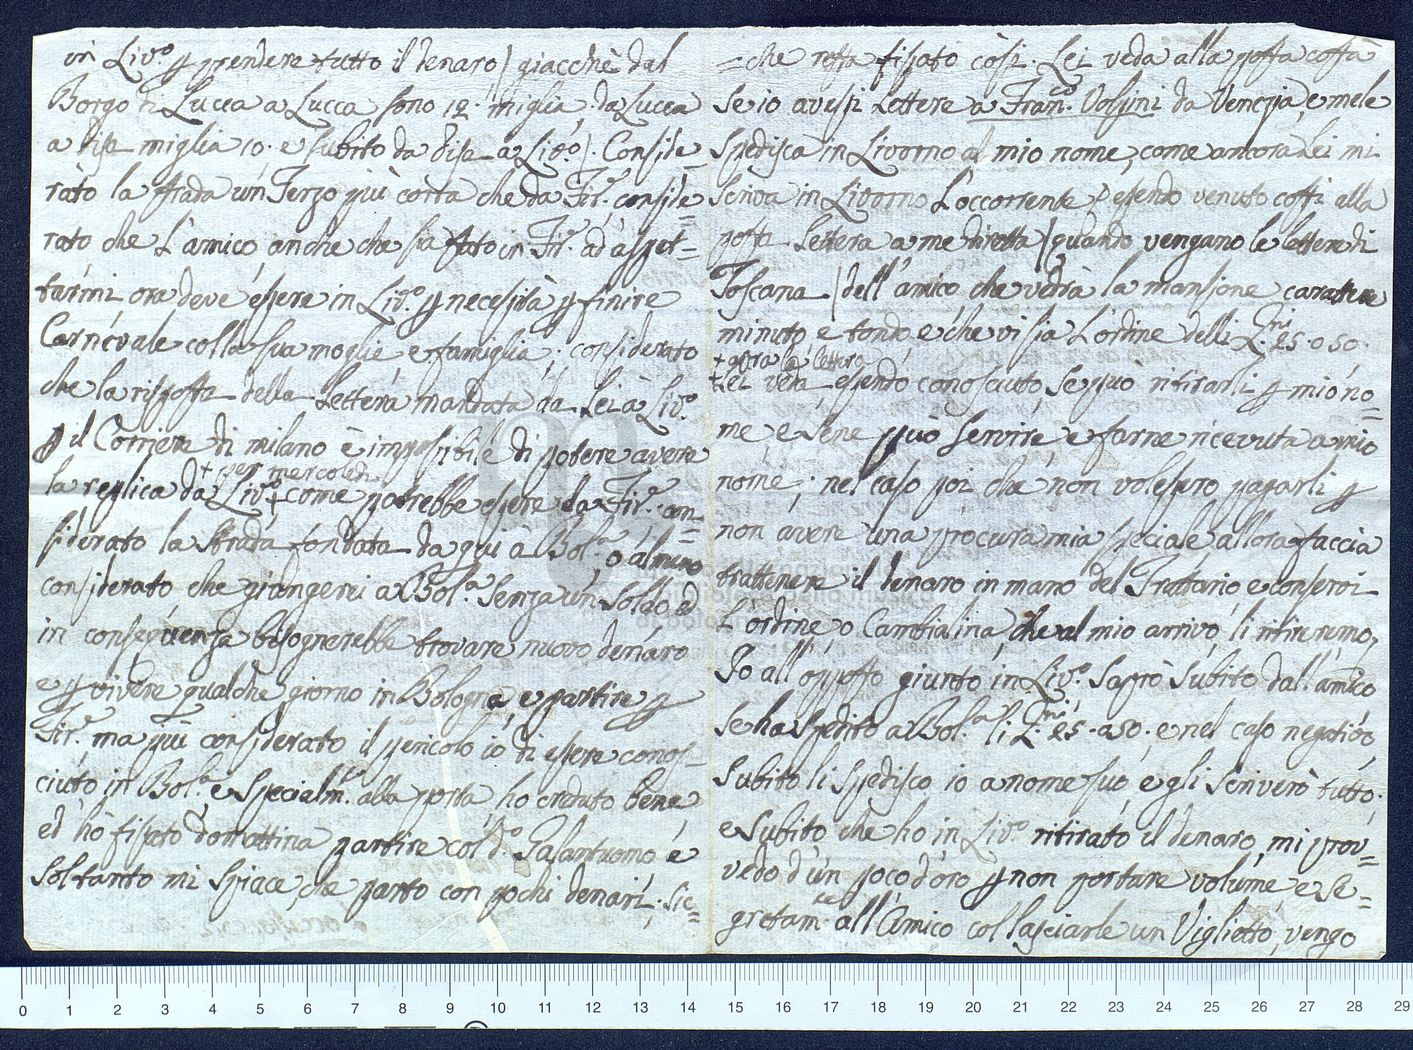 in Liv.º p prendere tutto il denaro / giacchè dal
Borgo di Lucca a Lucca sono 12. miglia, da Lucca
a Pisa miglia 10. e subito da Pisa a Liv.º /. Conside=
rato la strada un Terzo più corta che da Fir.e conside=
rato che l'amico, anche che sia stato in Fir.e ad aspet=
tarmi ore deve essere in Liv.º p necessità p finire
Carnevale colla sua moglie, e famiglia; considerato
che la risposta della Lettera mandata da Lei à Liv.º
p il Corriere di milano è impossibile di potere avere
+ per mercoledì
la replica da Liv.º + come potrebbe essere da Fir.e con=
siderato la strada fondata da qui à Bol.a, o almeno
considerato che giongerei a Bol.a senza un soldo ed
in conseguenza bisognerebbe trovare nuovo denaro
e p vivere qualche giorno in Bologna e partire p
Fir.e ma più considerato il pericolo io di essere conos=
ciuto in Bol.a e specialm.te alla porta, ho creduto bene
ed hò fissato domattina partire col d.º Galantuomo, e
soltanto mi spiace, che parto con pochi denari; sic=
=che resta fissato così. Lei veda alla posta costà
se io avessi Lettere a Fran.co Volpini da Venezia, e mele
spedisca in Livorno al mio nome, come ancora Lei mi
scriva in Livorno l'occorrente, essendo venuto costì alla
posta Lettera a me diretta / quando vengano le lettere di
Toscana / dell'amico che vedrà la mansione carattere
minuto, e tondo, e che vi sia l'ordine delli L.ni 25. o 50.
+ apra la lettera
+ Lei veda essendo conosciuto, se può ritirarli p mio no=
me e se ne può servire, e farne ricevuta a mio
nome; nel caso poi che non volessero pagarli p
non avere una procura mia speciale allora faccia
trattenere il denaro in mano del Trattario e conservi
l'ordine o Cambialina che al mio arrivo, li ritireremo,
Io all'opposto giunto in Liv.º saprò subito dall'amico
se ha spedito a Bol.a li L.ni 25. o 50. e nel caso negativo
subito li spedisco io a nome suo, e gli scriverò tutto.
e subito che ho in Liv.º ritirato il denaro, mi prov=
vedo d'un poco d'oro p non portare volume e se=
gretam.te all'Amico col lasciarle un Viglietto, vengo
0 1 2 3 4 5 6 7 8 9 10 11 12 13 14 15 16 17 18 19 20 21 22 23 24 25 26 27 28 29